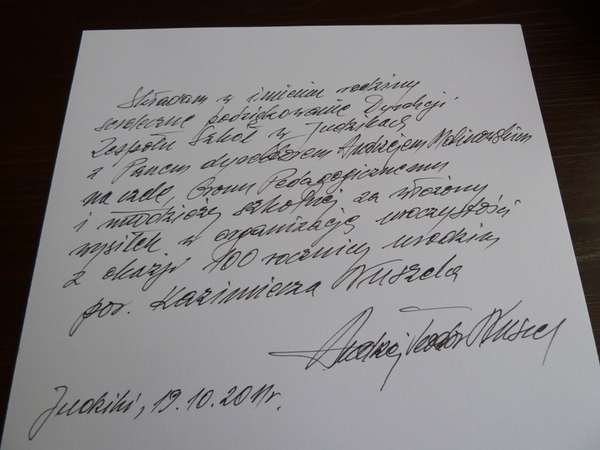 Składam w imieniu rodziny
serdeczne podziękowanie Dyrekcji
Zespołu Szkół w
z Panem dyrektorem Andrzejem Malinowskim
na czele, Gronu Pedagogicznemu
i młodzieży szkolnej za włożony
wysiłek w organizację uroczystości
z okazji 100 rocznicy urodzin
por. Kazimierza
Andrzej Teodor
19.10.2011r.